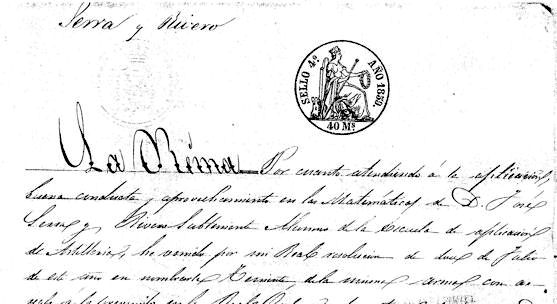 Serra y Rivero
SELLO 4º AÑO 1859.
40 Ms
La Reina Por cuanto atendiendo á la aplicacion,
buena conducta y aprovechamiento en las Matemáticas de D. José
Serra y Rivero Subteniente Alumno de la Escuela de aplicacion
de Artilleria, he venido por mi Real resolucion de doce de Julio
de este año en nombrarle Teniente de la misma arma con